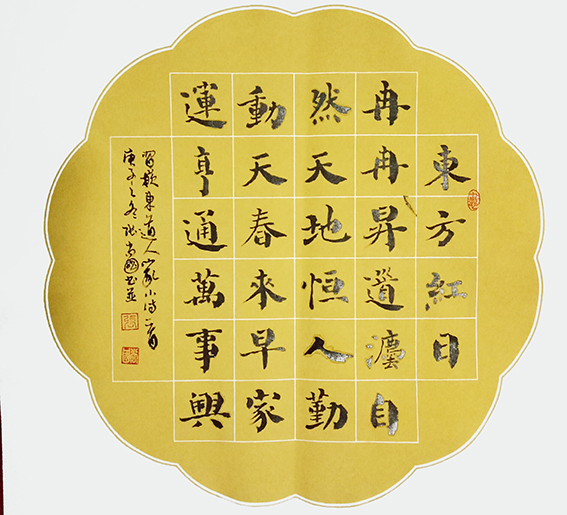 東方紅日
冉冉昇道灋自
然天地恒人勤
動天春來早家
運亨通萬事興
嵌東道人家小诗一首
庚子之冬國书並